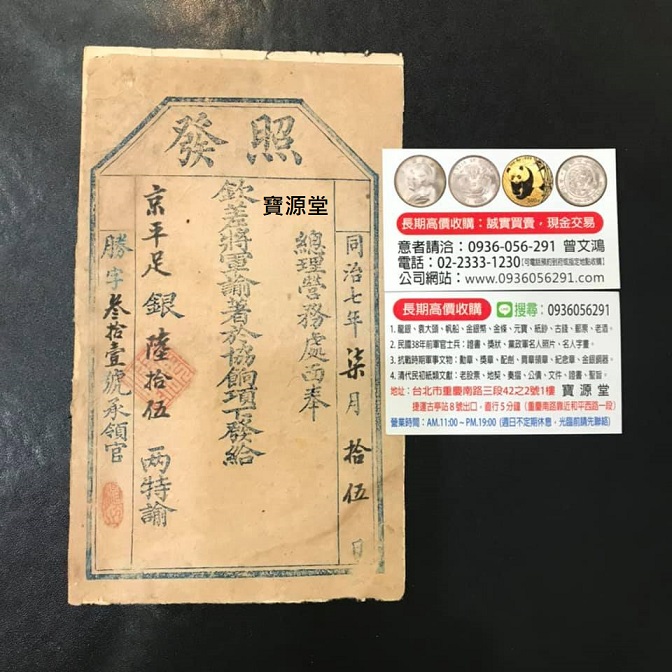 照發
同治七年柒月拾伍日
總理營務處面奉
欽差將軍諭著於協餉項下發給
京平足銀陸拾伍兩特諭
勝字叁拾壹號承領官
寶源堂
長期高價收購：誠實買賣，現金交易
意者請洽：0936-056-291 曾文鴻
電話：02-2333-1230【可電話預約到府或指定地點收購】
公司網站：www.0936056291.com
長期高價收購 搜尋：0936056291
1. 龍銀、袁大頭、帆船、金銀幣、金條、元寶、紙鈔、古錢、郵票、老酒。
2. 民國38年前軍官士兵：證書、獎狀、黨政軍名人照片、名人字畫。
3. 抗戰時期軍事文物：勳章、獎章、配劍、肩章領章、紀念章、金銀銅器。
4. 清代民初紙類文獻：老股票、地契、奏摺、公債、文件、證書、聖旨。
地址：台北市重慶南路三段42之2號1樓 寶源堂
捷運古亭站8號出口，直行5分鐘（重慶南路靠近和平西路一段）
營業時間：AM.11:00~PM.19:00 (週日不定期休息，光臨前請先聯絡)